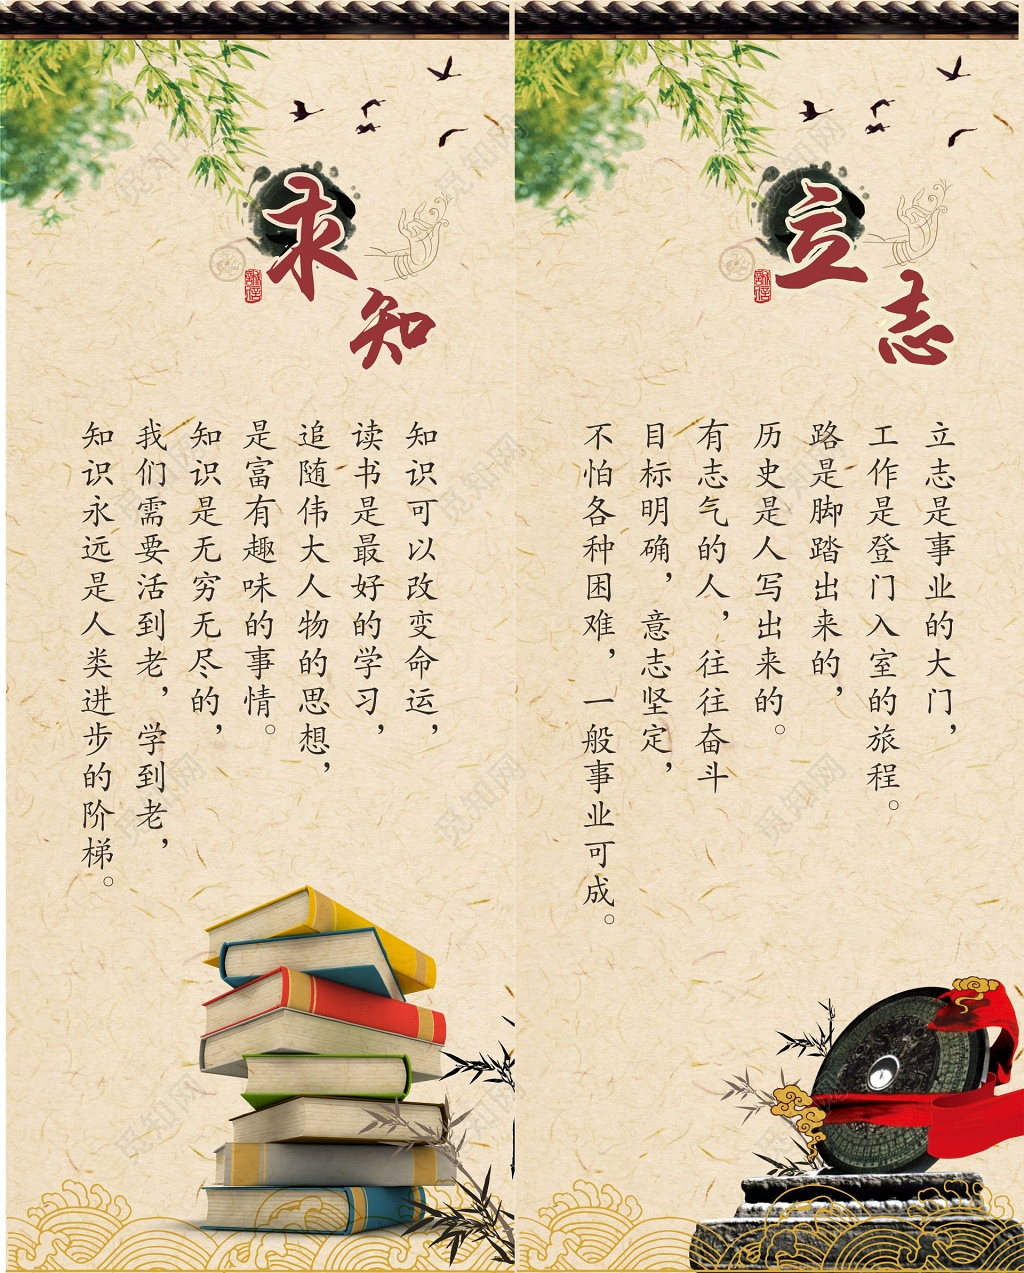 求知
知识可以改变命运，
读书是最好的学习，
追随伟大人物的思想，
是富有趣味的事情。
知识是无穷无尽的，
我们需要活到老，学到老，
知识永远是人类进步的阶梯。
立志
立志是事业的大门，
工作是登门入室的旅程。
路是脚踏出来的，
历史是人写出来的。
有志气的人，往往奋斗
目标明确，意志坚定，
不怕各种困难，一般事业可成。
诚信
诚信
觅知网